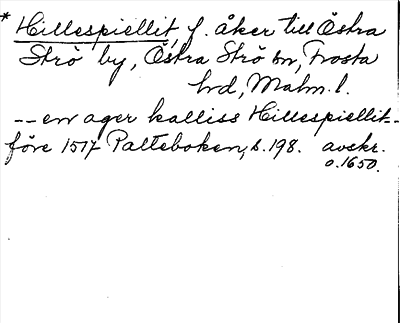 * Hillespiellit, f. åker till Östra
Strö by, Östra Strö sn, Frosta
hd, Malm. l.
-- en ager kalliss Hillespiellit --
före 1517 Palteboken, s. 198. avskr.
o. 1650.